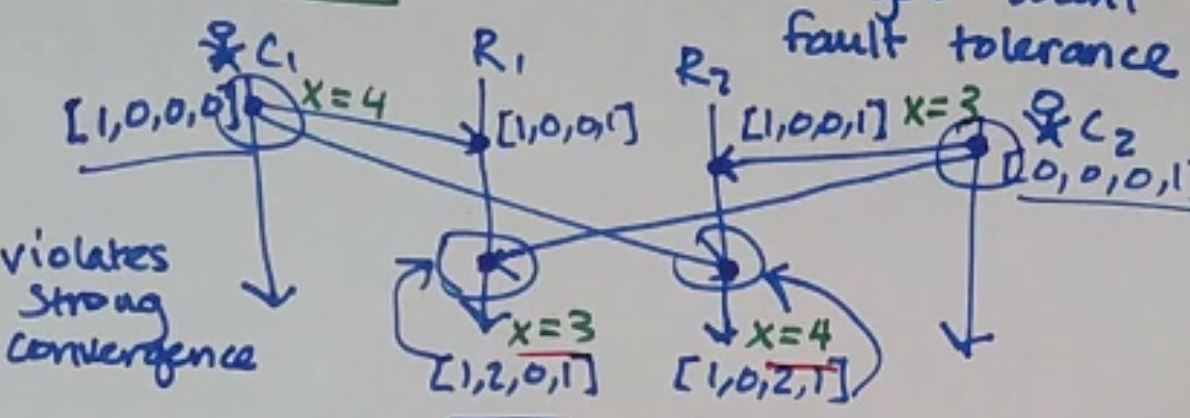 fault tolerance
C1
R1
R2
[1,0,0,0]
x=4
[1,0,0,1]
[1,0,0,1]
x=3
C2
[0,0,0,1]
violates
strong
convergence
x=3
x=4
[1,2,0,1]
[1,0,2,1]